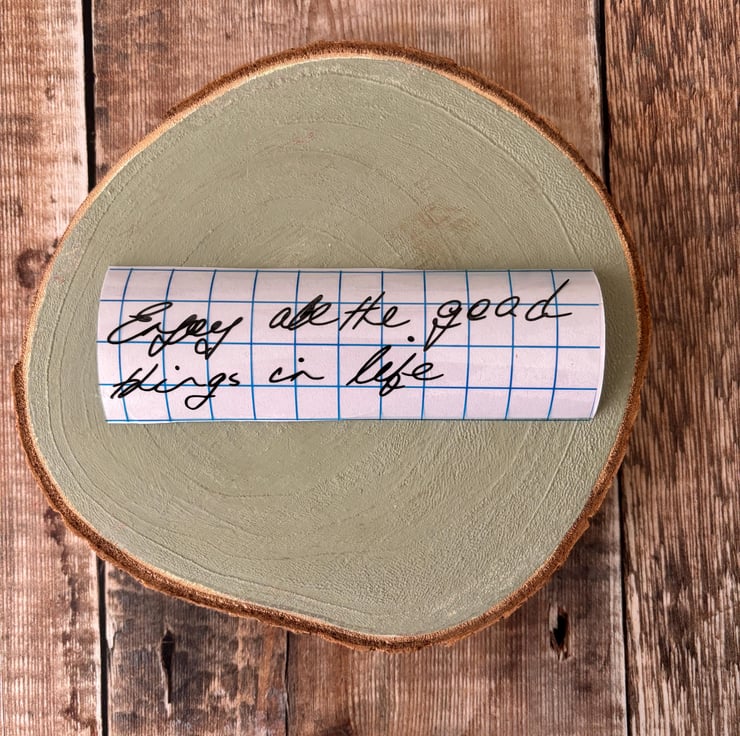 Enjoy all the good
things in life